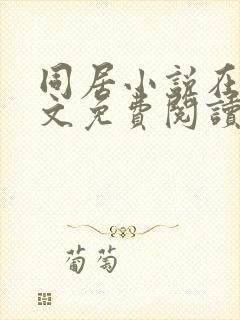 同居小说在
文免費閱讀
葡萄